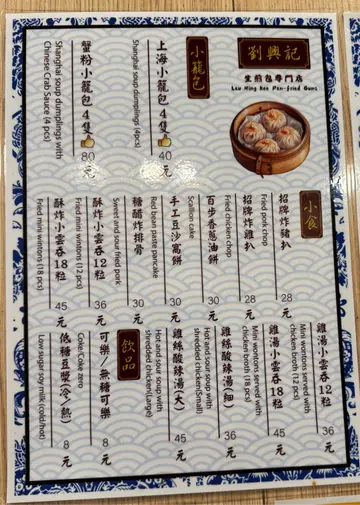 劉興記
生煎包專門店
Lau Hing Kee Pan-fried Buns
小籠包
上海小籠包4隻
40元
Shanghai soup dumplings (4pcs)
蟹粉小籠包4隻
80元
Shanghai soup dumplings with
Chinese Crab Sauce (4 pcs)
小食
招牌炸豬扒
28元
Fried pork chop
招牌炸雞扒
28元
Fried chicken chop
百步香蔥油餅
30元
Scallion cake
手工豆沙窩餅
30元
Red bean paste pancake
糖醋炸排骨
30元
Sweet and sour fried pork
酥炸小雲吞12粒
36元
Fried mini wontons (12 pcs)
酥炸小雲吞18粒
45元
Fried mini wontons (18 pcs)
雞湯小雲吞12粒
36元
Mini wontons served with
chicken broth (12 pcs)
雞湯小雲吞18粒
45元
Mini wontons served with
chicken broth (18 pcs)
雞絲酸辣湯(細)
36元
Hot and sour soup with
shredded chicken(Small)
雞絲酸辣湯(大)
45元
Hot and sour soup with
shredded chicken(Large)
飲品
可樂/無糖可樂
8元
Coke/Coke zero
低糖豆漿(冷/熱)
8元
Low sugar soy milk (cold/hot)